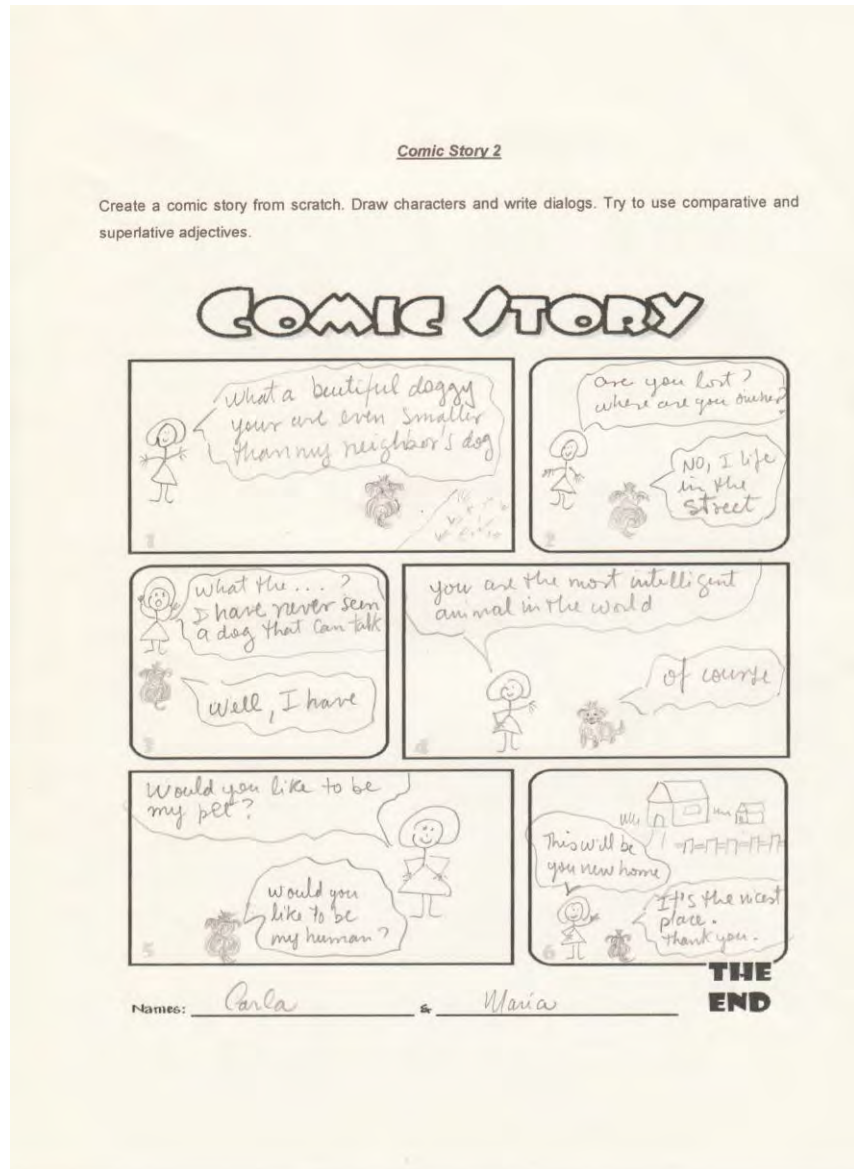 Comic Story 2
Create a comic story from scratch. Draw characters and write dialogs. Try to use comparative and
superlative adjectives.
COMIC STORY
What a beutiful doggy
your are even smaller
than my neighbor's dog
1
are you lost?
where are you owner?
NO, I life
in the
street
2
What the...?
I have never seen
a dog that can talk
Well, I have
3
you are the most intelligent
animal in the world
of course
4
Would you like to be
my pet?
would you
like to be
my human?
5
This will be
you new home
It's the nicest
place.
thank you.
6
THE
END
Names: Carla & Maria